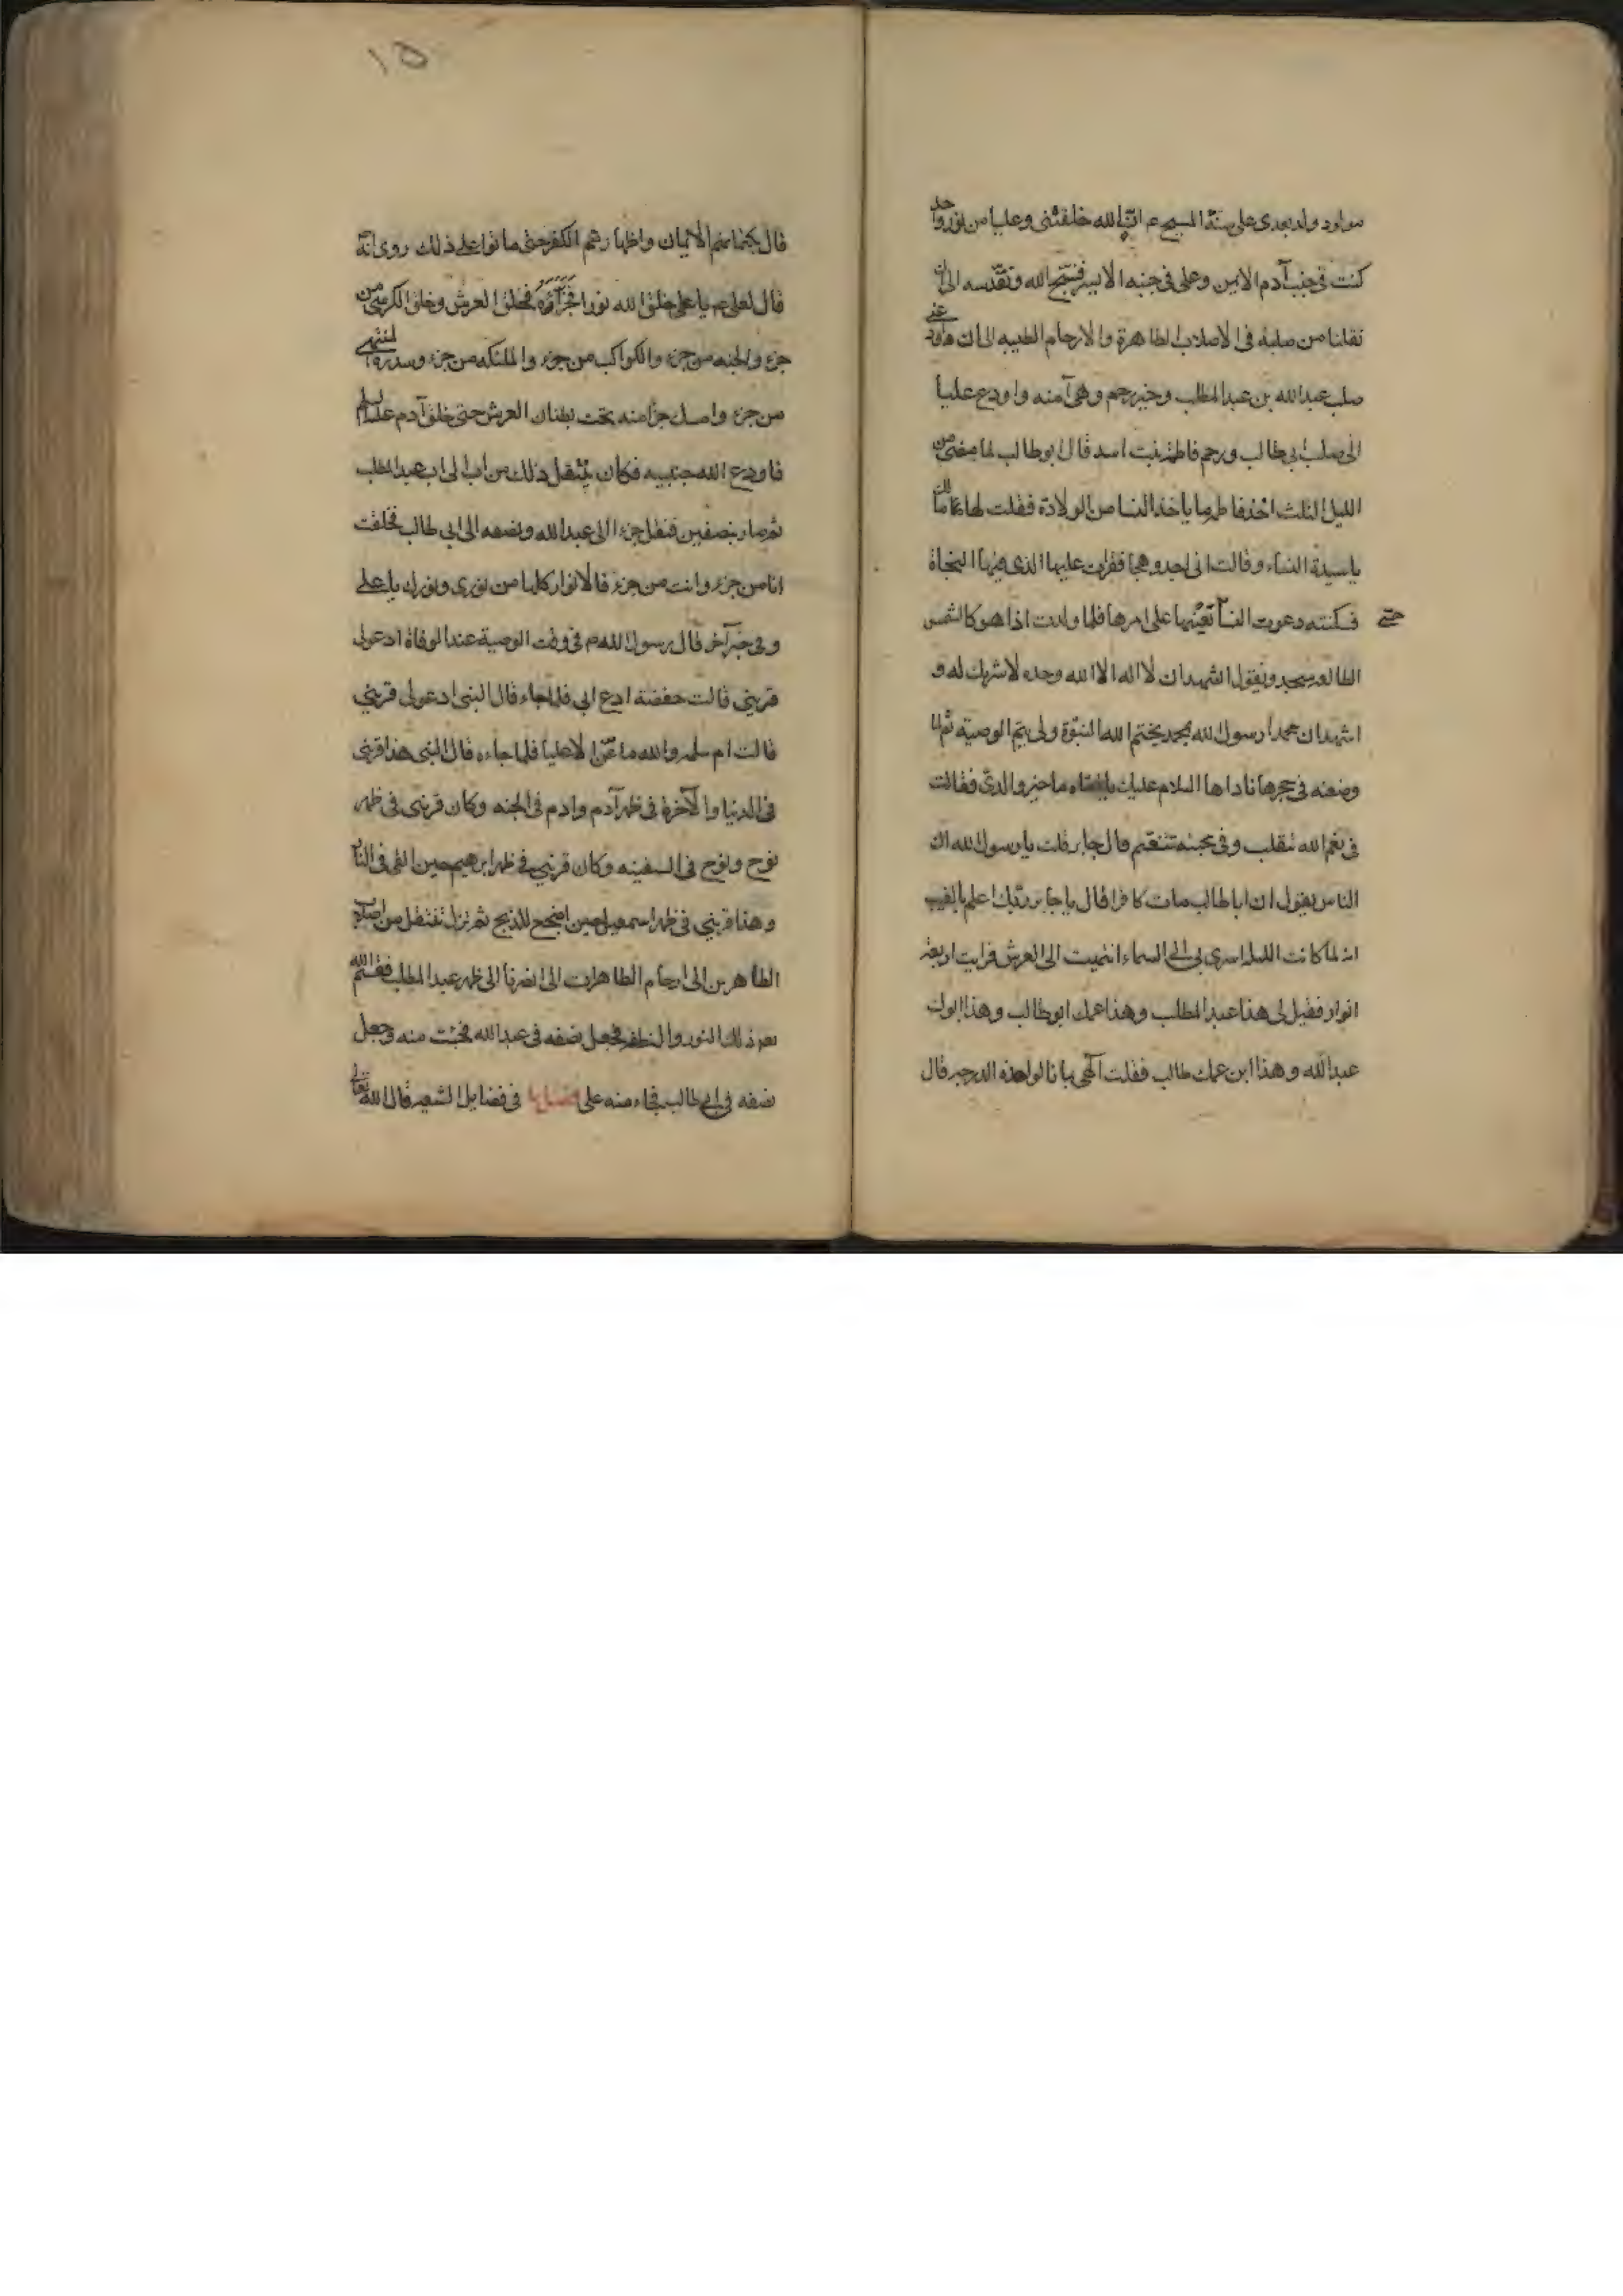 مولود ولد بعدى على سنة المسيح ع ان الله خلقنى وعليا من نور واحد
كنت فى جنب آدم الايمن وعلى فى جنبه الايسر فنسبح الله ونقدسه الى ان
نقلنا من صلبه فى الاصلاب الطاهرة والارحام الطيبه الى ان اودعنى
صلب عبدالله بن عبدالمطلب وخير رحم وهى آمنه واودع عليا
الى صلب ابى طالب ورحم فاطمة بنت اسد قال ابوطالب لما مضى من
الليل الثلث اخذ فاطمة ما ياخذ النسا من الولادة فقلت لها مالك
يا سيدة النساء وقالت انى اجد وهجا فقرات عليها الذى فيها النجاة
فسكنته دعوت النسا تعينها على امرها فلما ولدت اذا هو كالشمس
حتى
الطالعه سجد ويقول اشهد ان لا اله الا الله وحده لا شريك له و
اشهد ان محمدا رسول الله بمحمد يختم الله النبوة ولى يتم الوصية ثم لما
وضعته فى حجرها ناداها السلام عليك ما خبر والدى فقالت
فى نعم الله نتقلب وفى محبته نتنعم قال جابر قلت يا رسول الله ان
الناس يقول ان اباطالب مات كافرا قال يا جابر ربك اعلم بالغيب
انه لما كانت الليلة اسرى بى الى السماء انتهيت الى العرش فرايت اربعة
انوار فقيل لى هذا عبدالمطلب وهذا عمك ابوطالب وهذا ابوك
عبدالله وهذا ابن عمك طالب فقلت آلهى بما نالوا هذه الدرجه قال
١٥
قال بكتمانهم الايمان واظهارهم الكفر حتى ماتوا على ذلك روى انه
قال لعلى ع يا على خلق الله نورا فجزأه فخلق العرش وخلق الكرسى من
جزء والجنه من جزء والكواكب من جزء والملئكه من جزء وسدرة المنتهى
من جزء وامسك جزأ منه تحت بطنان العرش حتى خلق آدم عليه السلم
فاودع الله جنبيه فكان ينتقل ذلك من اب الى اب عبدالمطلب
ثم صار نصفين فنقل جزء الى عبدالله ونصفه الى ابى طالب فخلقت
انا من جزء وانت من جزء فالانوار كلها من نورى ونورك يا على
وفى خبر آخر قال رسول الله ص فى وقت الوصية عند الوفاة ادعو لى
قرينى قالت حفضة ادع ابى فلما جاء قال النبى ادعو لى قرينى
قالت ام سلمه والله ما عنى الا عليا فلما جاءه قال النبى هذا قرينى
فى الدنيا والآخرة فى ظهر آدم وادم فى الجنه وكان قرينى فى ظهر
نوح ونوح فى السفينه وكان قرينى فى ظهر ابرهيم حين القى فى النار
وهذا قرينى فى ظهر اسمعيل حين اضجع للذبح ثم نزل ننتقل من اصلاب
الطاهرين الى ارحام الطاهرات الى ان صرنا الى ظهر عبدالمطلب فقسم الله
ذلك النور والنطفه فجعل نصفه فى عبدالله فجئت منه وجعل
نصفه فى ابى طالب فجاء منه على فصل فى فضايل الشيعه قال الله تعالى